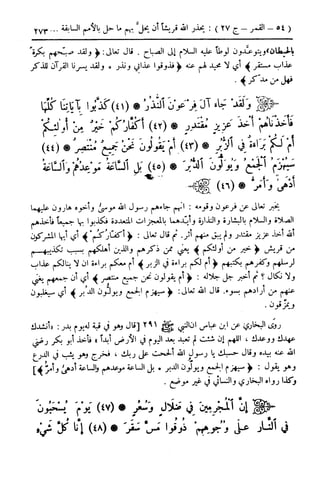 (٥٤ – القمر – ج ٢٧) : يحذر الله قريشاً أن يحلّ بهم ما حل بالأمم السابقة ... ٢٧٣
بالحيطان﴾ ويتوعدون لوطاً عليه السلام إلى الصباح . قال تعالى: ﴿ ولقد صبّحهم بكرة
عذاب مستقر ﴾ أي لا محيد لهم عنه ﴿ فذوقوا عذابي ونذر ٭ ولقد يسرنا القرآن للذكر
فهل من مدكر ﴾ .
وَلَقَدْ جَاءَ آلَ فِرْعَوْنَ النُّذُرُ ٭ (٤١) كَذَّبُوا بِآيَاتِنَا كُلِّهَا
فَأَخَذْنَاهُمْ أَخْذَ عَزِيزٍ مُّقْتَدِرٍ ٭ (٤٢) أَكُفَّارُكُمْ خَيْرٌ مِّنْ أُولَٰئِكُمْ
أَمْ لَكُم بَرَاءَةٌ فِي الزُّبُرِ ٭ (٤٣) أَمْ يَقُولُونَ نَحْنُ جَمِيعٌ مُّنتَصِرٌ ٭ (٤٤)
سَيُهْزَمُ الْجَمْعُ وَيُوَلُّونَ الدُّبُرَ ٭ (٤٥) بَلِ السَّاعَةُ مَوْعِدُهُمْ وَالسَّاعَةُ
أَدْهَىٰ وَأَمَرُّ ٭ (٤٦)
يخبر تعالى عن فرعون وقومه : انهم جاءهم رسول الله موسى وأخوه هارون عليهما
الصلاة والسلام بالبشارة والنذارة وأيدهما بالمعجزات المتعددة فكذبوا بها جميعاً فأخذهم
الله أخذ عزيز مقتدر ولم يبق منهم أثر. ثم قال تعالى : ﴿ أكفاركم ﴾ أي أيها المشركون
من قريش ﴿ خير من أولئكم ﴾ يعني من الذين ذكرهم والذين أهلكهم بسبب تكذيبهم
لرسلهم وكفرهم بكتبهم ﴿ أم لكم براءة في الزبر ﴾ أم معكم براءة ان لا ينالكم عذاب
ولا نكال ؟ ثم أخبر جل جلاله : ﴿ أم يقولون نحن جميع منتصر ﴾ أي أن جمعهم يغني
عنهم من أرادهم بسوء. قال الله تعالى: ﴿ سيهزم الجمع ويولون الدبر ﴾ أي سيغلبون
ويمزقون .
روى البخاري عن ابن عباس ان النبي ﷺ ٢٩١ [قال وهو في قبة له يوم بدر: «أنشدك
عهدك ووعدك ، اللهم إن شئت لم تعبد بعد اليوم في الأرض أبداً» فأخذ أبو بكر رضي
الله عنه بيده وقال حسبك يا رسول الله ألححت على ربك ، فخرج وهو يثب في الدرع
وهو يقول : ﴿ سيهزم الجمع ويولون الدبر ٭ بل الساعة موعدهم والساعة أدهى وأمر﴾]
وكذا رواه البخاري والنسائي في غير موضع .
إِنَّ الْمُجْرِمِينَ فِي ضَلَالٍ وَسُعُرٍ ٭ (٤٧) يَوْمَ يُسْحَبُونَ
فِي النَّارِ عَلَىٰ وُجُوهِهِمْ ذُوقُوا مَسَّ سَقَرَ ٭ (٤٨) إِنَّا كُلَّ شَيْءٍ